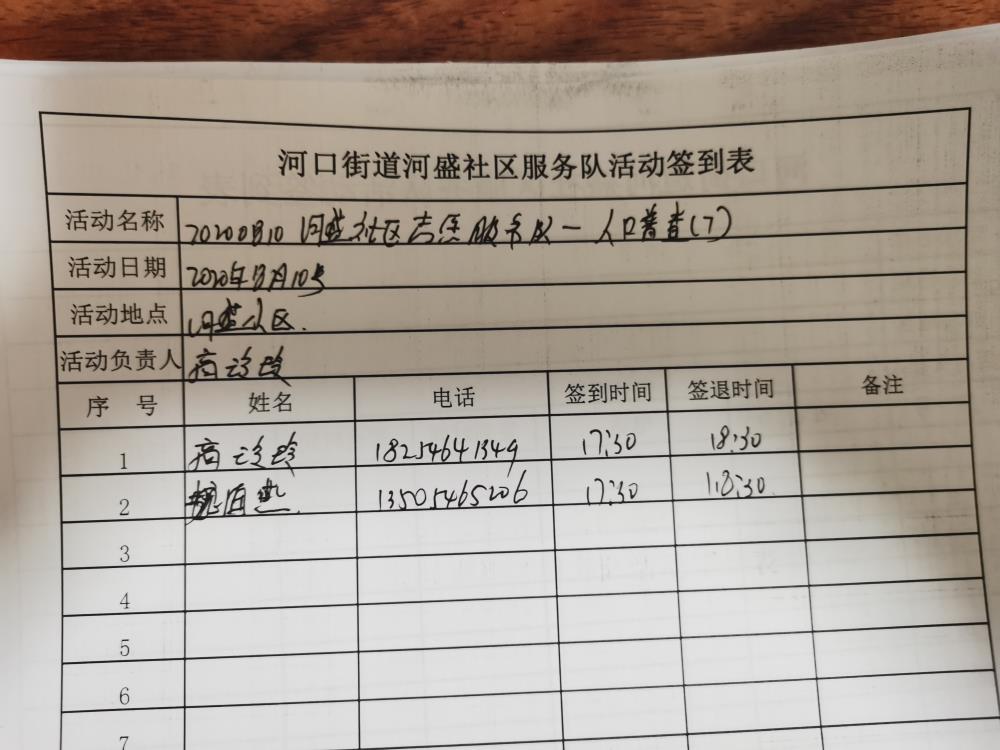 河口街道河盛社区服务队活动签到表
活动名称 河盛社区志愿服务队一人口普查(7)
活动日期 2020年8月10号
活动地点 河盛社区.
活动负责人
序 号 姓名 电话 签到时间 签退时间 备注
1 18254641349 17:30 18:30
2 13505465206 17:30 18:30
3
4
5
6
7